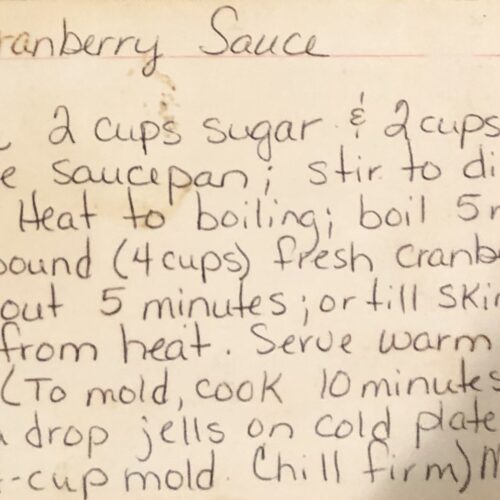 ranberry Sauce
2 cups sugar & 2 cups
e saucepan; stir to di
Heat to boiling; boil 5 m
pound (4 cups) fresh cranbe
out 5 minutes; or till skin
from heat. Serve warm
(To mold, cook 10 minutes
drop jells on cold plate
-cup mold. Chill firm) M